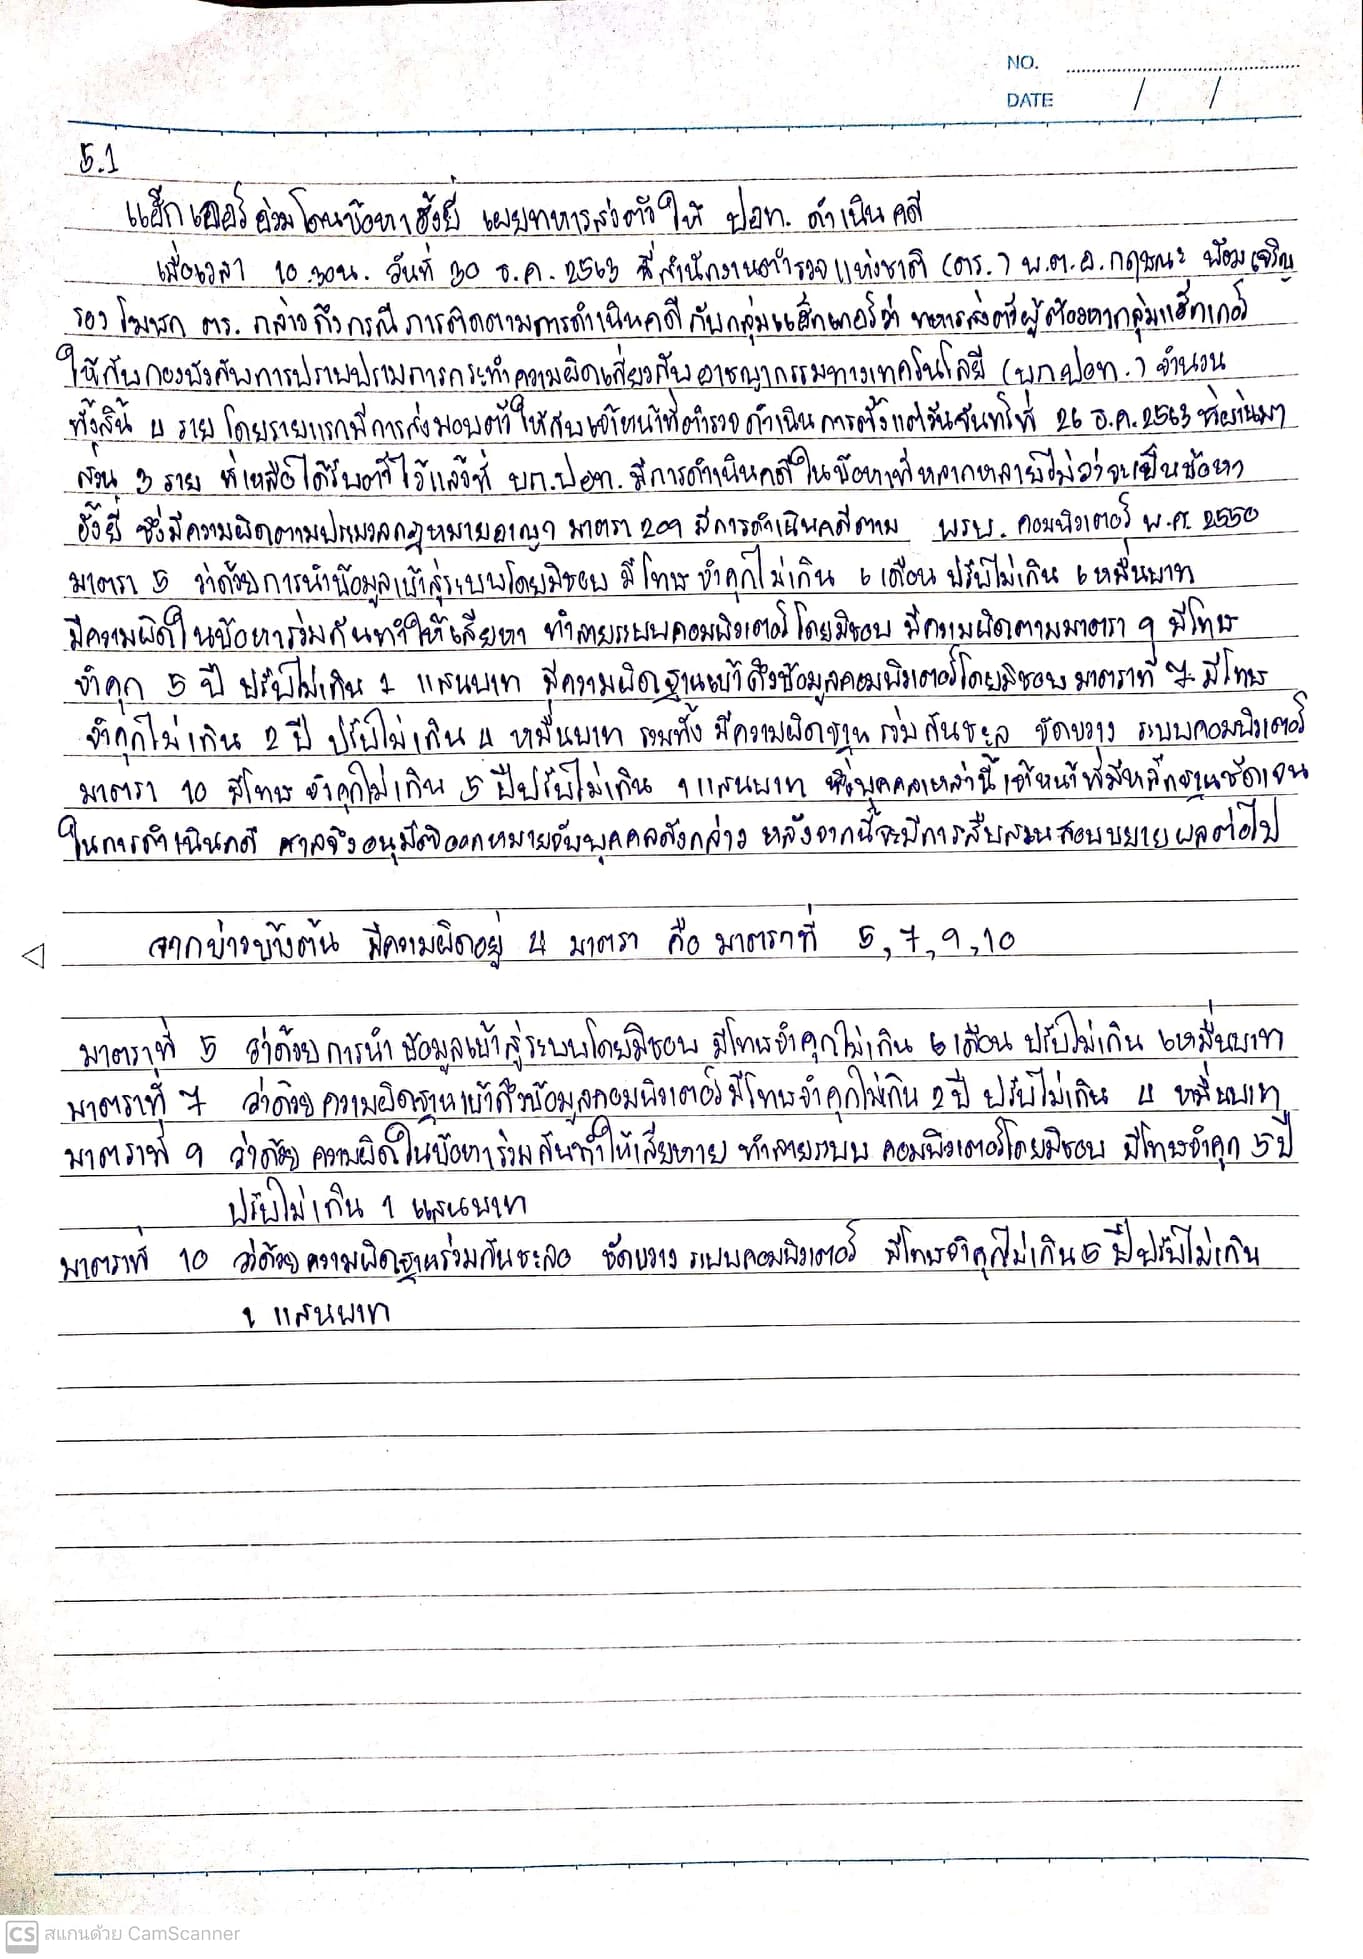 NO.
DATE / /
5.1
แฮ็กเกอร์อ่วมโดนข้อหาอั้งยี่ เผยทหารส่งตัวให้ ปอท. ดำเนินคดี
เมื่อเวลา 10.30น. วันที่ 30 ธ.ค. 2563 ที่สำนักงานตำรวจแห่งชาติ (ตร.) พ.ต.อ.กฤษณะ พัฒนเจริญ
รองโฆษก ตร. กล่าวถึงกรณีการติดตามการดำเนินคดีกับกลุ่มแฮ็กเกอร์ว่า ทหารส่งตัวผู้ต้องหากลุ่มแฮ็กเกอร์
ให้กับกองบังคับการปราบปรามการกระทำความผิดเกี่ยวกับอาชญากรรมทางเทคโนโลยี (บก.ปอท.) จำนวน
ทั้งสิ้น 4 ราย โดยรายแรกมีการส่งมอบตัวให้กับเจ้าหน้าที่ตำรวจดำเนินการตั้งแต่วันจันทร์ที่ 26 ธ.ค.2563 ที่ผ่านมา
ส่วน 3 ราย ที่เหลือได้รับตัวไว้แล้วที่ บก.ปอท. มีการดำเนินคดีในข้อหาที่หลากหลายไม่ว่าจะเป็นข้อหา
อั้งยี่ ซึ่งมีความผิดตามประมวลกฎหมายอาญา มาตรา 209 มีการดำเนินคดีตาม พรบ. คอมพิวเตอร์ พ.ศ. 2550
มาตรา 5 ว่าด้วยการนำข้อมูลเข้าสู่ระบบโดยมิชอบ มีโทษจำคุกไม่เกิน 6 เดือน ปรับไม่เกิน 6 หมื่นบาท
มีความผิดในข้อหาร่วมกันทำให้เสียหา ทำลายระบบคอมพิวเตอร์โดยมิชอบ มีความผิดตามมาตรา 9 มีโทษ
จำคุก 5 ปี ปรับไม่เกิน 1 แสนบาท มีความผิดฐานเข้าถึงข้อมูลคอมพิวเตอร์โดยมิชอบมาตราที่ 7 มีโทษ
จำคุกไม่เกิน 2 ปี ปรับไม่เกิน 4 หมื่นบาท รวมทั้ง มีความผิดฐาน ร่วมกันชะลอ ขัดขวาง ระบบคอมพิวเตอร์
มาตรา 10 มีโทษ จำคุกไม่เกิน 5 ปีปรับไม่เกิน 1 แสนบาท ซึ่งบุคคลเหล่านี้เจ้าหน้าที่มีหลักฐานชัดเจน
ในการดำเนินคดี ศาลจึงอนุมัติออกหมายจับบุคคลดังกล่าว หลังจากนี้จะมีการสืบสวนสอบขยายผลต่อไป
จากข่าวข้างต้น มีความผิดอยู่ 4 มาตรา คือ มาตราที่ 5,7,9,10
มาตราที่ 5 ว่าด้วยการนำข้อมูลเข้าสู่ระบบโดยมิชอบ มีโทษจำคุกไม่เกิน 6 เดือน ปรับไม่เกิน 6หมื่นบาท
มาตราที่ 7 ว่าด้วยความผิดฐานเข้าถึงข้อมูลคอมพิวเตอร์ มีโทษจำคุกไม่เกิน 2 ปี ปรับไม่เกิน 4 หมื่นบาท
มาตราที่ 9 ว่าด้วย ความผิดในข้อหาร่วมกันทำให้เสียหาย ทำลายระบบ คอมพิวเตอร์โดยมิชอบ มีโทษจำคุก 5 ปี
ปรับไม่เกิน 1 แสนบาท
มาตราที่ 10 ว่าด้วยความผิดฐานร่วมกันชะลอ ขัดขวาง ระบบคอมพิวเตอร์ มีโทษจำคุกไม่เกิน 5 ปีปรับไม่เกิน
1 แสนบาท
CS สแกนด้วย CamScanner